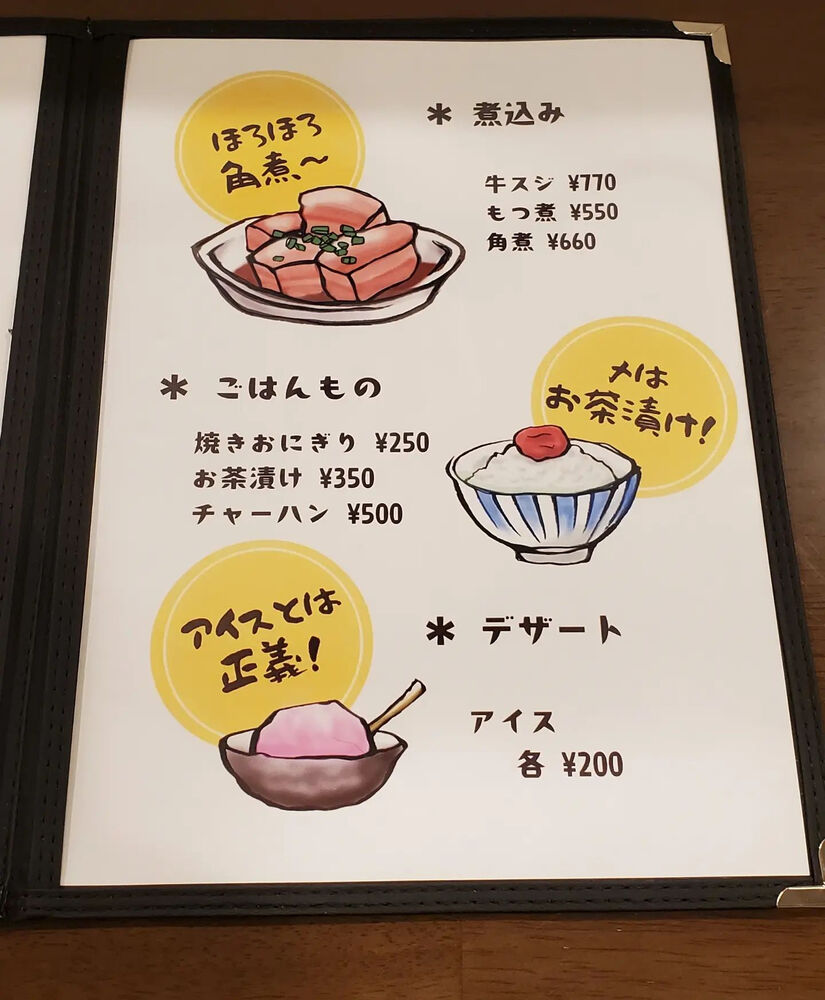 ほろほろ
角煮〜
* 煮込み
牛スジ ¥770
もつ煮 ¥550
角煮 ¥660
* ごはんもの
焼きおにぎり ¥250
お茶漬け ¥350
チャーハン ¥500
〆は
お茶漬け!
アイスとは
正義!
* デザート
アイス
各 ¥200